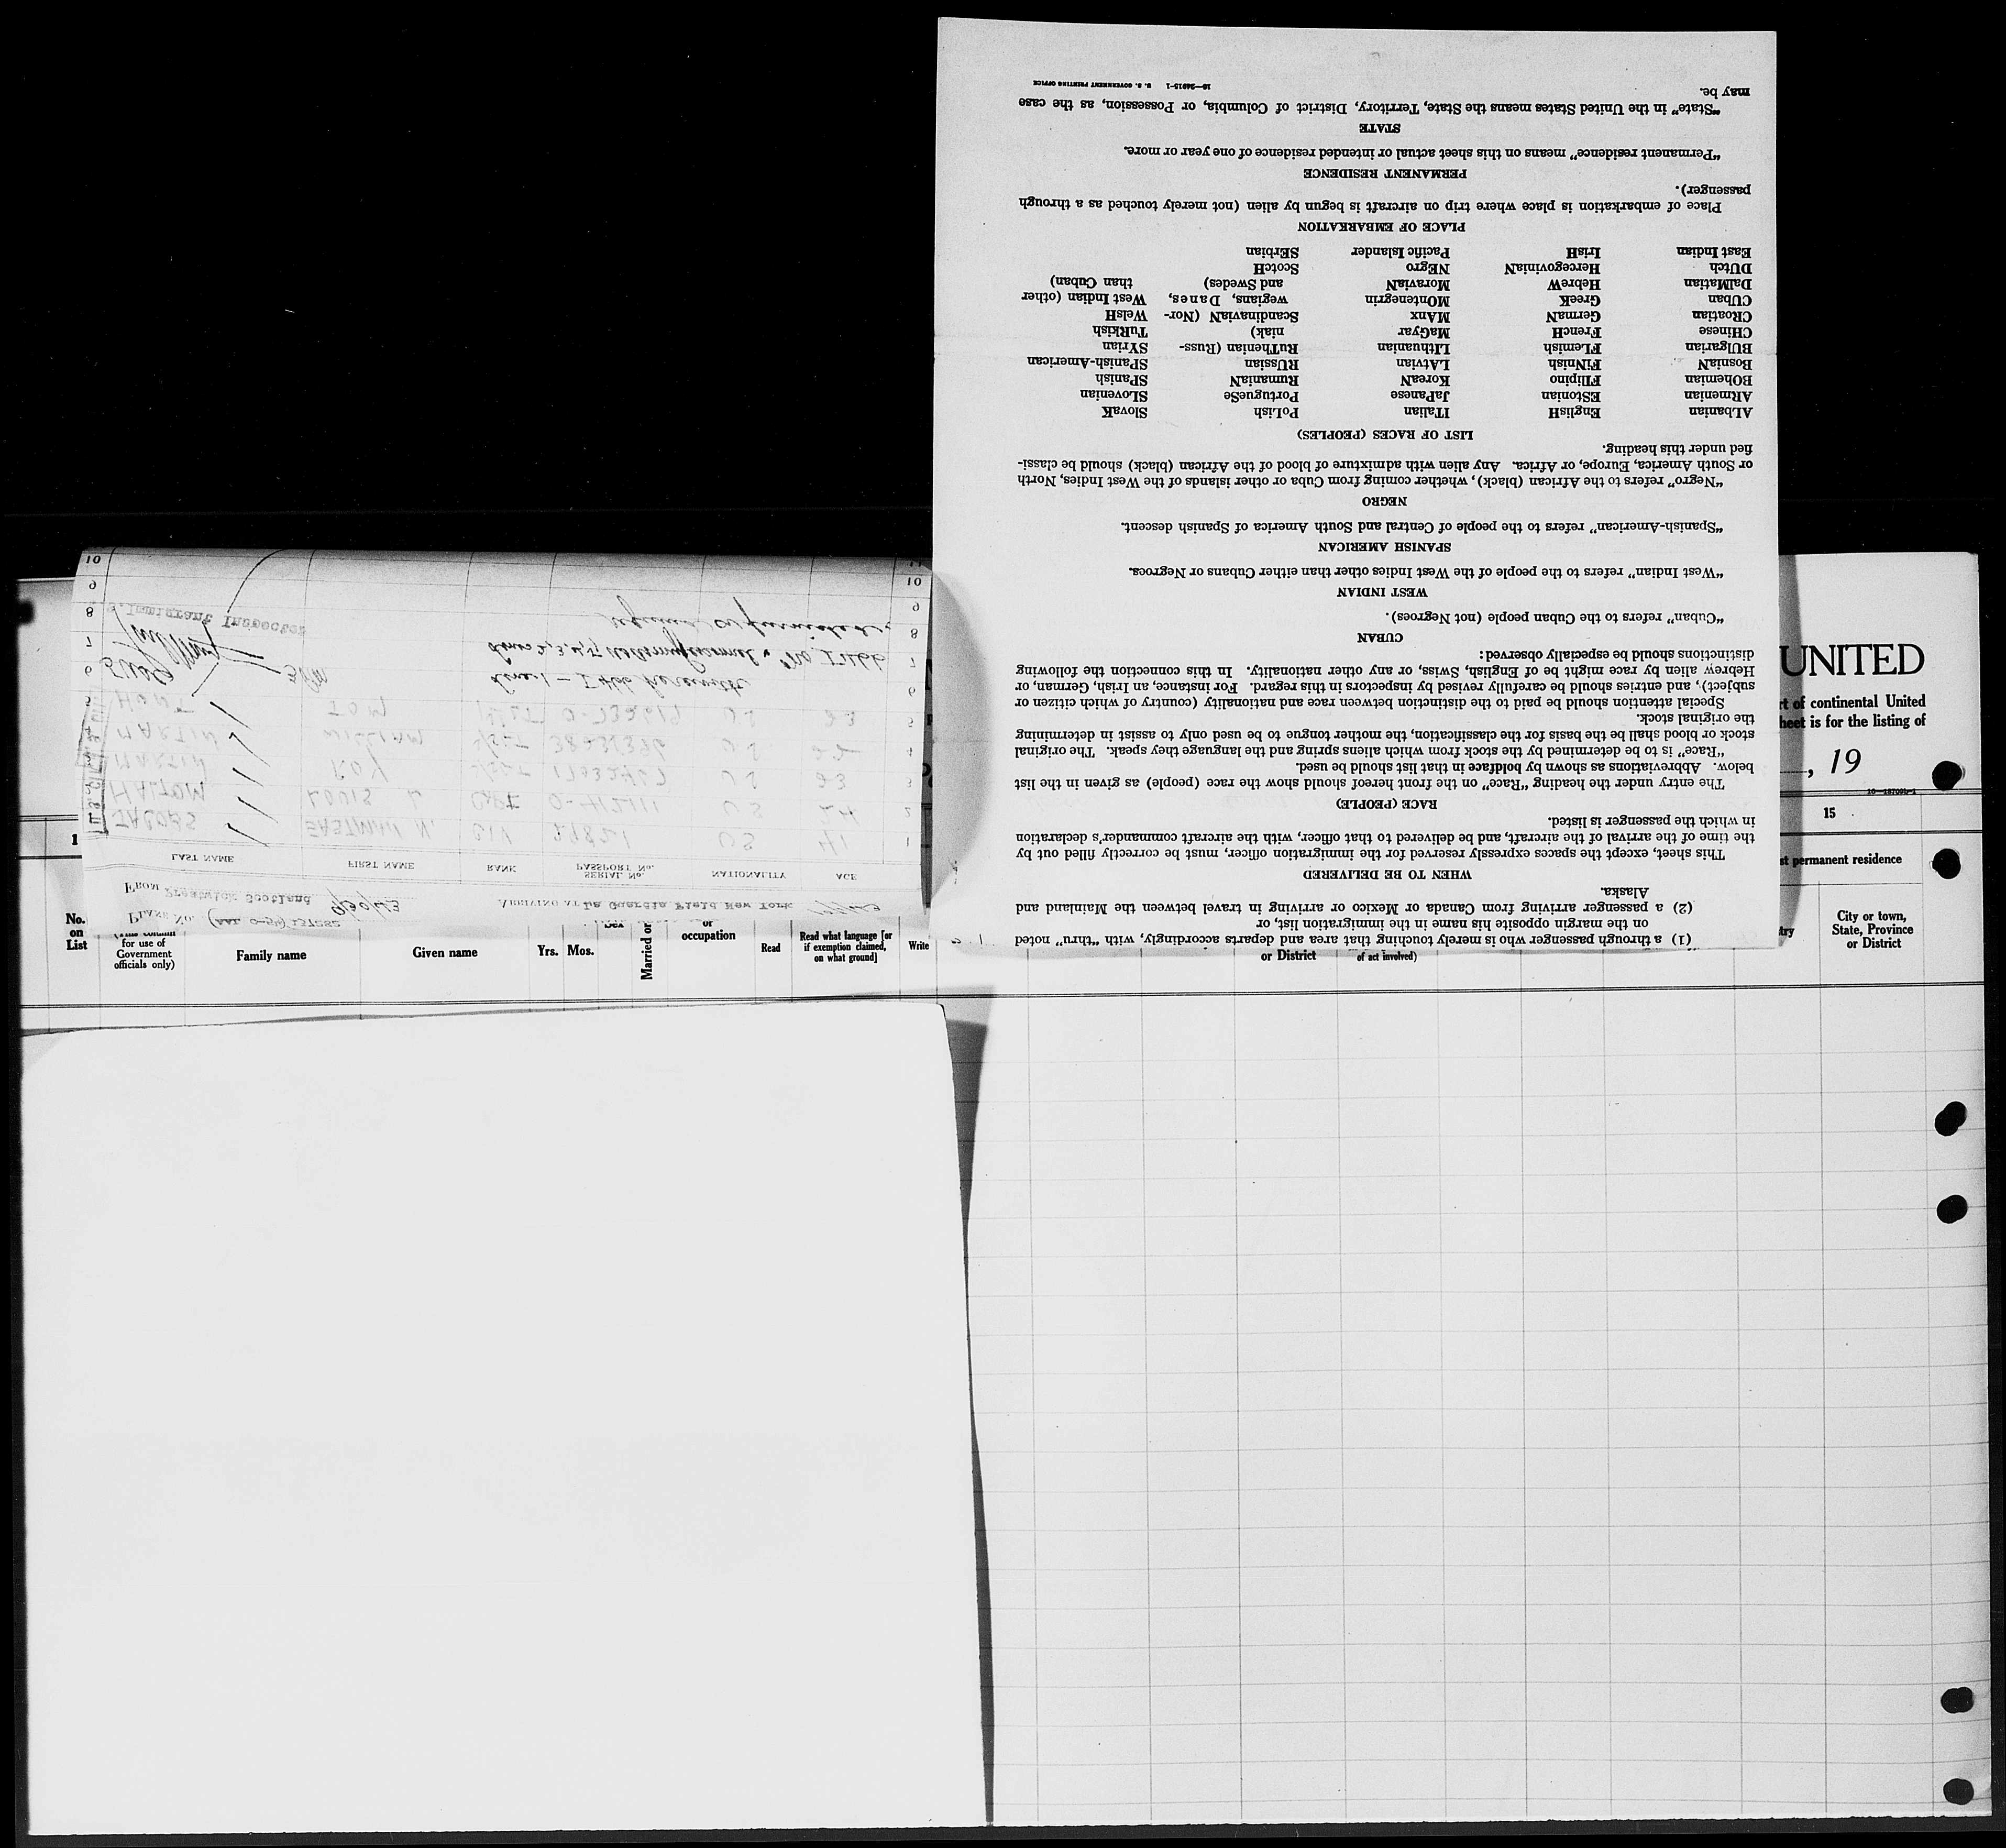 PLANE No. (AAL C-54) 137282
FROM Prestwick Scotland 9/30/43 ARRIVING AT La Guardia Field New York
LAST NAME FIRST NAME RANK SERIAL No. PASSPORT No. NATIONALITY AGE
1 JACOBS EASTMAN N. CIV 27821 US 41 1
2 HALTOM LOUIS CAPT O-412111 US 24 2
3 MARTIN ROY S/SGT US 23 3
4 MARTIN WILLIAM S/SGT US 22 4
5 HUNT TOM O-732619 US 23 5
6 line 1 — I 466 herewith 6
7 7
8 Immigrant Inspector 8
9 9
10 10
(1) a through passenger who is merely touching that area and departs accordingly, with “thru” noted
on the margin opposite his name in the immigration list, or
(2) a passenger arriving from Canada or Mexico or arriving in travel between the Mainland and
Alaska.
WHEN TO BE DELIVERED
This sheet, except the spaces expressly reserved for the immigration officer, must be correctly filled out by
the time of the arrival of the aircraft, and be delivered to that officer, with the aircraft commander’s declaration
in which the passenger is listed.
RACE (PEOPLE)
The entry under the heading “Race” on the front hereof should show the race (people) as given in the list
below. Abbreviations as shown by boldface in that list should be used.
“Race” is to be determined by the stock from which aliens spring and the language they speak. The original
stock or blood shall be the basis for the classification, the mother tongue to be used only to assist in determining
the original stock.
Special attention should be paid to the distinction between race and nationality (country of which citizen or
subject), and entries should be carefully revised by inspectors in this regard. For instance, an Irish, German, or
Hebrew alien by race might be of English, Swiss, or any other nationality. In this connection the following
distinctions should be especially observed:
CUBAN
“Cuban” refers to the Cuban people (not Negroes).
WEST INDIAN
“West Indian” refers to the people of the West Indies other than either Cubans or Negroes.
SPANISH AMERICAN
“Spanish-American” refers to the people of Central and South America of Spanish descent.
NEGRO
“Negro” refers to the African (black), whether coming from Cuba or other islands of the West Indies, North
or South America, Europe, or Africa. Any alien with admixture of blood of the African (black) should be classi-
fied under this heading.
LIST OF RACES (PEOPLES)
ALbanian EnglisH ITalian PoLish SlovaK
ARmenian EStonian JaPanese PortugueSe SLovenian
BOhemian FIlipino KoreaN RumaniaN SPanish
BosniaN FiNnish LAtvian RUssian SPanish-American
BUlgarian FLemish LIthuanian RuThenian (Russ- SYrian
CHinese FrencH MaGyar niak) TuRkish
CRoatian GermaN MAnx ScandinaviaN (Nor- WelsH
CUban GreeK MOntenegrin wegians, Danes, West Indian (other
DalMatian HebreW MoraviaN and Swedes) than Cuban)
DUtch HercegoviniaN NEgro ScotcH
East Indian IrisH Pacific Islander SErbian
PLACE OF EMBARKATION
Place of embarkation is place where trip on aircraft is begun by alien (not merely touched as a through
passenger).
PERMANENT RESIDENCE
“Permanent residence” means on this sheet actual or intended residence of one year or more.
STATE
“State” in the United States means the State, Territory, District of Columbia, or Possession, as the case
may be.
16—24915-1 U. S. GOVERNMENT PRINTING OFFICE
UNITED
rt of continental United
heet is for the listing of
, 19
15
st permanent residence
1
No.
on
List
(This column
for use of
Government
officials only)
Family name
Given name
Yrs. Mos.
Married or
or
occupation
Read
Read what language [or
if exemption claimed,
on what ground]
Write
or District
of act involved)
try
City or town,
State, Province
or District